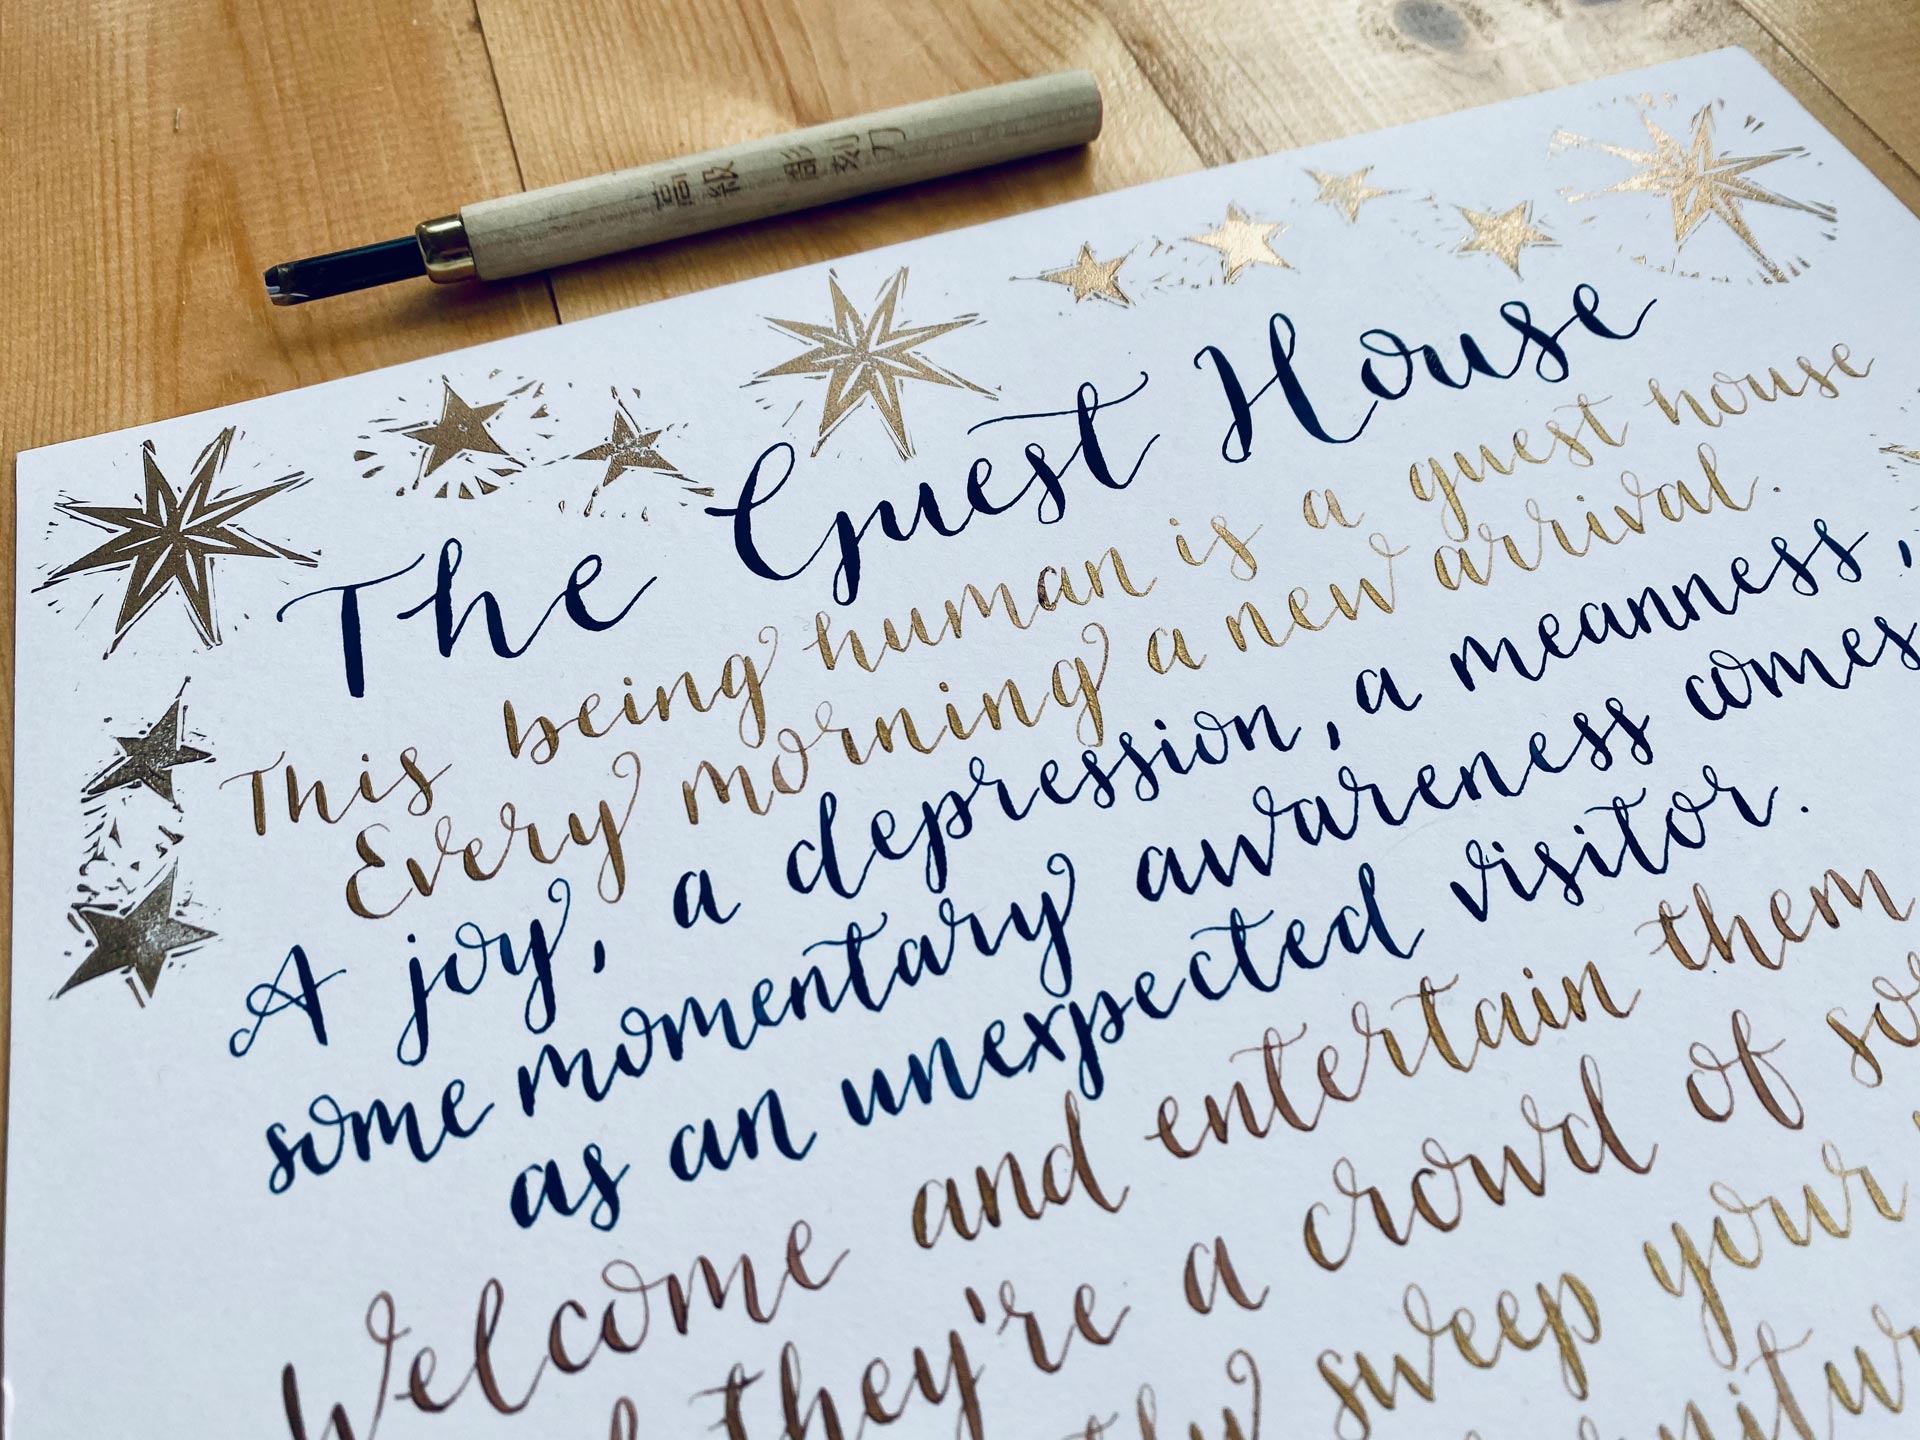 高級 彫刻刀
The Guest House
This being human is a guest house
Every morning a new arrival.
A joy, a depression, a meanness,
some momentary awareness comes
as an unexpected visitor.
Welcome and entertain them
they're a crowd of
sweep your